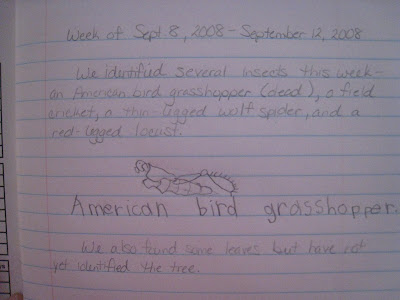 Week of Sept. 8, 2008 - September 12, 2008
We identified several insects this week -
an American bird grasshopper (dead), a field
cricket, a thin-legged wolf spider, and a
red-legged locust.
American bird grasshopper.
We also found some leaves but have not
yet identified the tree.